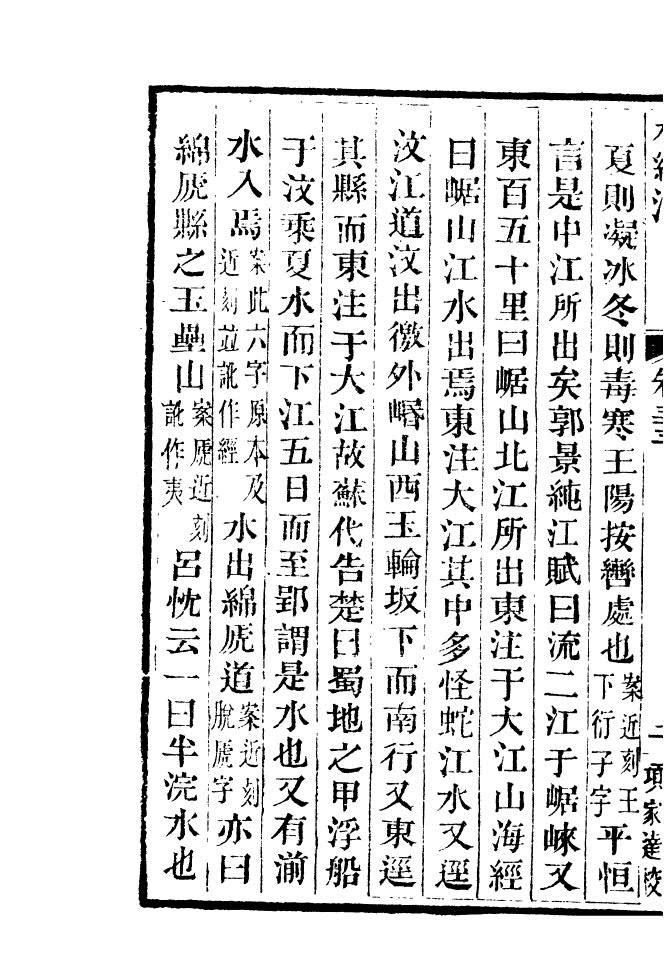 水經注 卷三十三 二 項家達校
夏則凝冰冬則毒寒王陽按轡處也案近刻王下衍子字平恒
言是中江所出矣郭景純江賦曰流二江于崌崍又
東百五十里曰崌山北江所出東注于大江山海經
曰崌山江水出焉東注大江其中多怪蛇江水又逕
汶江道汶出徼外㟭山西玉輪坂下而南行又東逕
其縣而東注于大江故蘇代告楚曰蜀地之甲浮船
于汶乘夏水而下江五日而至郢謂是水也又有湔
水入焉案此六字原本及近刻並訛作經水出綿虒道案近刻脫虒字亦曰
綿虒縣之玉壘山案虒近刻訛作夷呂忱云一曰半浣水也